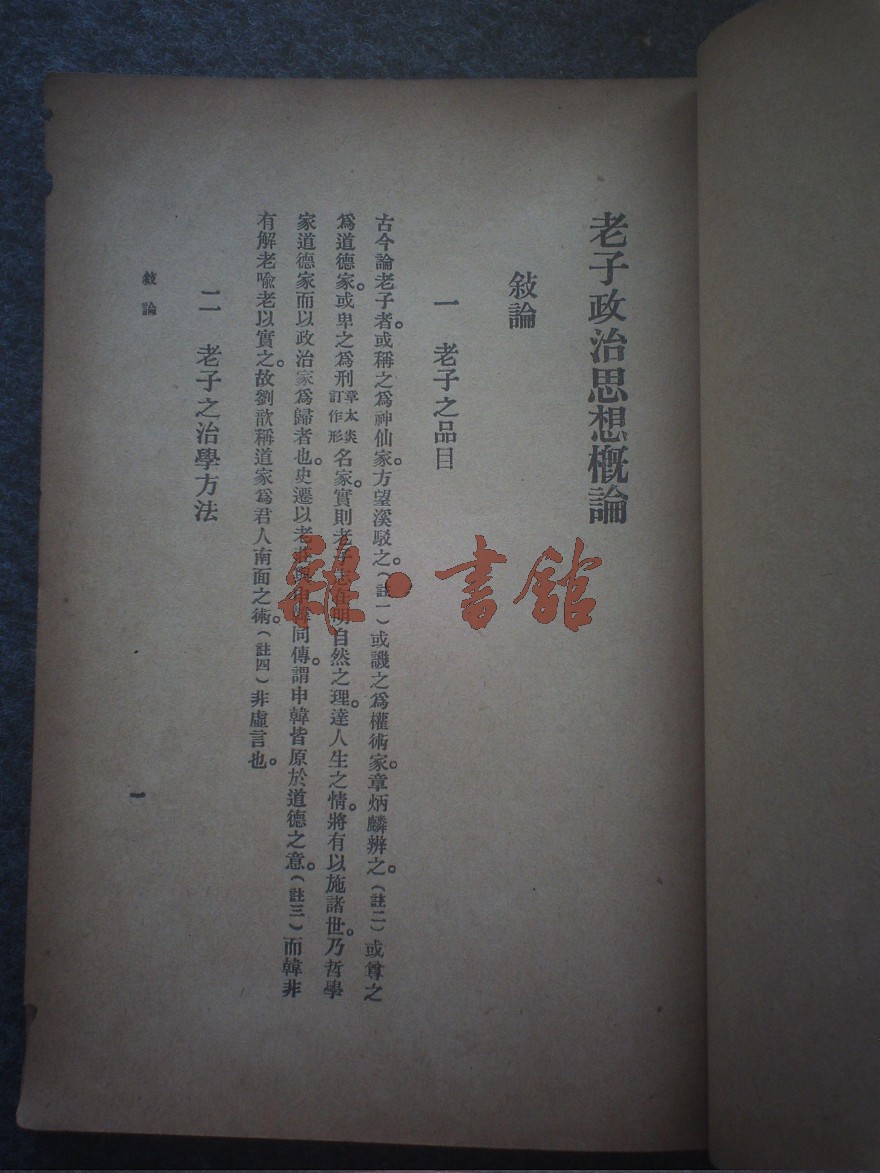 老子政治思想概論
敍論
一　老子之品目
古今論老子者。或稱之爲神仙家。方望溪駁之。(註一)或譏之爲權術家。章炳麟辨之。(註二)或尊之
爲道德家。或卑之爲刑章太炎訂作形名家。實則老子志在明自然之理。達人生之情。將有以施諸世。乃哲學
家道德家而以政治家爲歸者也。史遷以老莊與申韓同傳。謂申韓皆原於道德之意。(註三)而韓非
有解老喻老以實之。故劉歆稱道家爲君人南面之術。(註四)非虛言也。
二　老子之治學方法
敍論
一
雜·書館